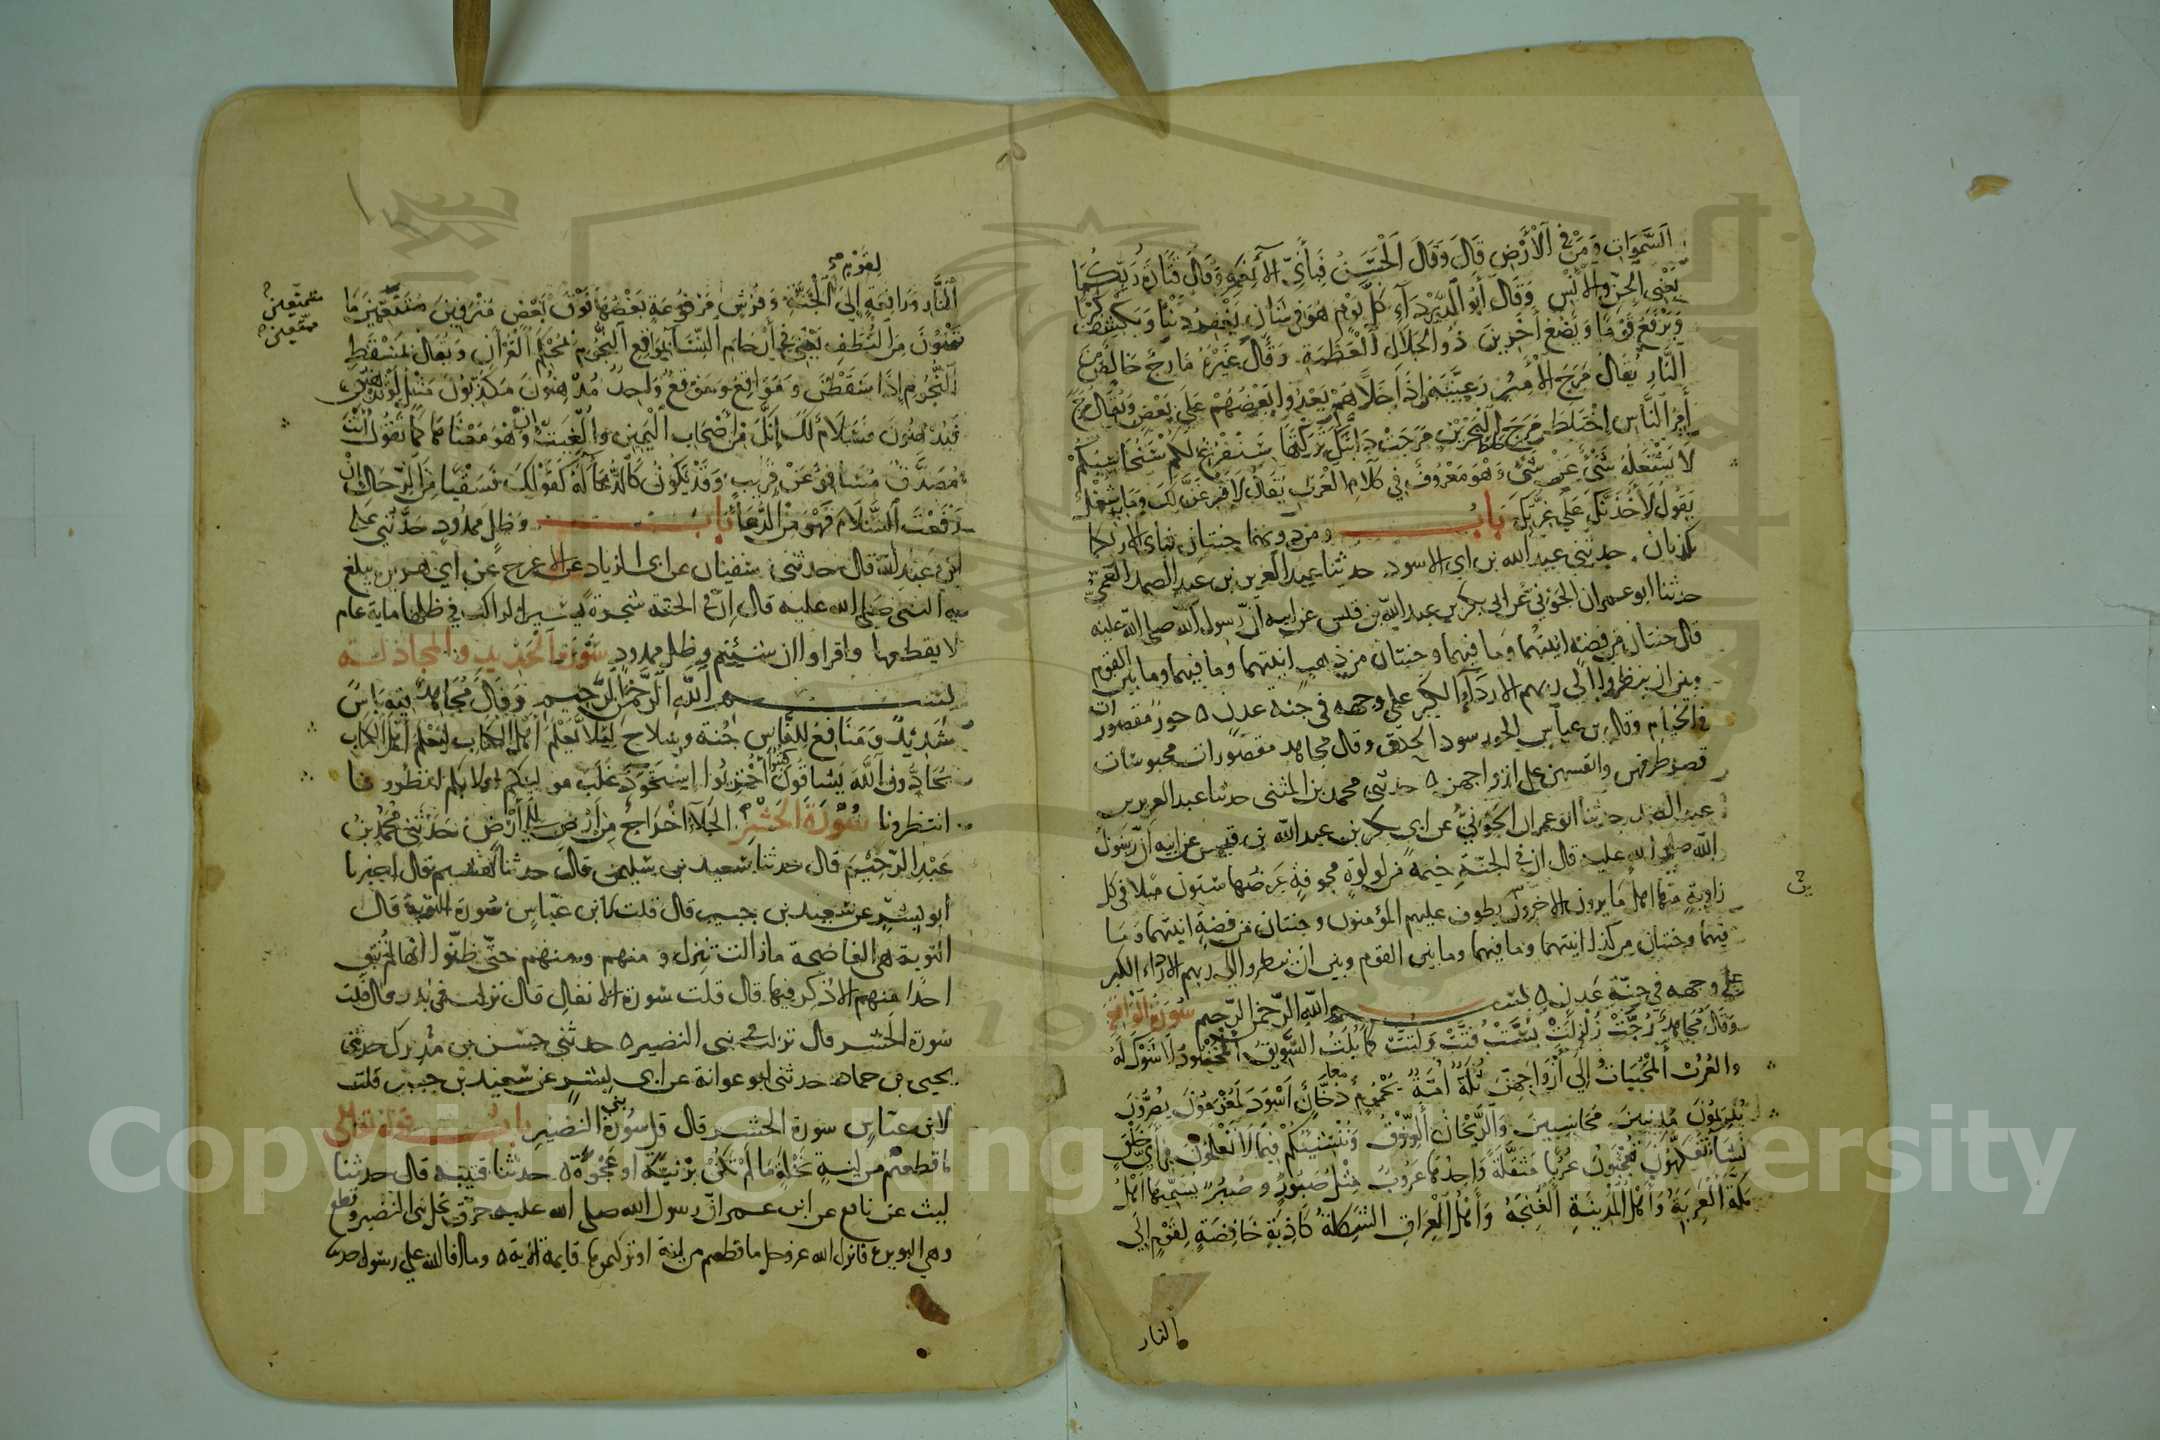 السموات ومن في الارض قال وقال الحسن فباي الآ نعمه وقال قتادة ربكما
يعني الجن والانس وقال ابو الدرداء كل يوم هو في شان يغفر ذنبا ويكشف كربا
ويرفع قوما ويضع اخرين ذو الجلال العظمة وقال غيره مارج خالص من
النار يقال مرج الامير رعيته اذا خلاهم يعدوا بعضهم على بعض ويقال مرج
امر الناس اختلط مرج البحرين مرجت دابتك تركتها سنفرغ لكم سنحاسبكم
لا يشغله شئ عن شئ وهو معروف في كلام العرب يقال لاتفرغن لك وما به شغل
يقول لاخذنك على غرتك باب ومن دونهما جنتان فباي الا ربكما
تكذبان حدثني عبد الله بن ابي الاسود حدثنا عبد العزيز بن عبد الصمد العمي
حدثنا ابو عمران الجوني عن ابي بكر بن عبد الله بن قيس عن ابيه ان رسول الله صلى الله عليه
قال جنتان من فضة انيتهما وما فيهما وجنتان من ذهب انيتهما وما فيهما وما بين القوم
وبين ان ينظروا الى ربهم الا رداء الكبر على وجهه في جنة عدن ه حور مقصورات
في الخيام وقال بن عباس الحور سود الحدق وقال مجاهد مقصورات محبوسات
قصر طرفهن وانفسهن على ازواجهن ه حدثني محمد بن المثنى حدثنا عبد العزيز بن
عبد الصمد حدثنا ابو عمران الجوني عن ابي بكر بن عبد الله بن قيس عن ابيه ان رسول
الله صلى الله عليه قال ان في الجنة خيمة من لولوة مجوفة عرضها ستون ميلا في كل
زاوية منها اهل ما يرون الاخرين يطوف عليهم المؤمنون وجنتان من فضة انيتهما وما
فيهما وجنتان من كذا انيتهما وما فيهما وما بين القوم وبين ان ينظروا الى ربهم الا رداء الكبر
على وجهه في جنة عدن ه بسم الله الرحمن الرحيم سورة الواقعة
وقال مجاهد رجت زلزلت بست فتت ولتت كما يلت السويق المخضود لا شوك له
والعرب المحببات الى ازواجهن ثلة امة يحموم دخان اسود لمغرمون
مدينين محاسبين والريحان الرزق وننشئكم فيما لا تعلمون في اي خلق
نشا تفكهون تعجبون عربا مثقلة واحدها عروب مثل صبور وصبر يسميها اهل
مكة العربة واهل المدينة الغنجة واهل العراق الشكلة كاذبة خافضة لقوم الى
النار
لقوم
النار ورافعة الى الجنة وفرش مرفوعة بعضها فوق بعض مترفين متنعمين ما
متمتعين
ممتعين
تمنون من النطف يعني في ارحام النساء بمواقع النجوم بمحكم القران ويقال بمسقط
النجوم اذا سقطن ومواقع وموقع واحد مدهنون مكذبون مثل لو تدهن
فيدهنون فسلام لك انك من اصحاب اليمين والغيت ان وهو معناها كما تقول انت
مصدق مسافر عن قريب وقد يكون كالدعاء له كقولك فسقيا من الرجال ان
رفعت السلام فهو من الدعاء باب وظل ممدود حدثني علي
ابن عبد الله قال حدثني سفيان عن ابي الزناد عن الاعرج عن ابي هريرة يبلغ
به النبي صلى الله عليه قال ان في الجنة شجرة يسير الراكب في ظلها ماية عام
لا يقطعها واقراوا ان شيتم وظل ممدود سورة الحديد والمجادلة
بسم الله الرحمن الرحيم وقال مجاهد فيه باس
شديد ومنافع للناس جنة وسلاح ليلا يعلم اهل الكتاب ليعلم اهل الكتاب
يحادون الله يشاقون كبتوا اخزيوا استحوذ غلب موليكم اولا بكم انظرونا
انتظرونا سورة الحشر الجلا اخراج من ارض الى ارض حدثني محمد بن
عبد الرحيم قال حدثنا سعيد بن سليمن قال حدثنا هشيم قال اخبرنا
ابو بشر عن سعيد بن جبير قال قلت لابن عباس سورة التوبة قال
التوبة هي الفاضحة ما زالت تنزل ومنهم ومنهم حتى ظنوا انها لم تبق
احدا منهم الا ذكر فيها قال قلت سورة الانفال قال نزلت في بدر قال قلت
سورة الحشر قال نزلت في بني النضير ه حدثني حسن بن مدرك حدثني
يحيى بن حماد حدثني ابو عوانة عن ابي بشر عن سعيد بن جبير قلت
لابن عباس سورة الحشر قال قل سورة بني النضير باب قوله تعالى
ما قطعتم من لينة نخلة ما لم تكن برنية او عجوة ه حدثنا قتيبة قال حدثنا
ليث عن نافع عن ابن عمر ان رسول الله صلى الله عليه حرق نخل بني النضير وقطع
وهي البويرة فانزل الله عز وجل ما قطعتم من لينة او تركتموها قايمة الاية ه وما افا الله على رسوله
Copyright © King Saud University